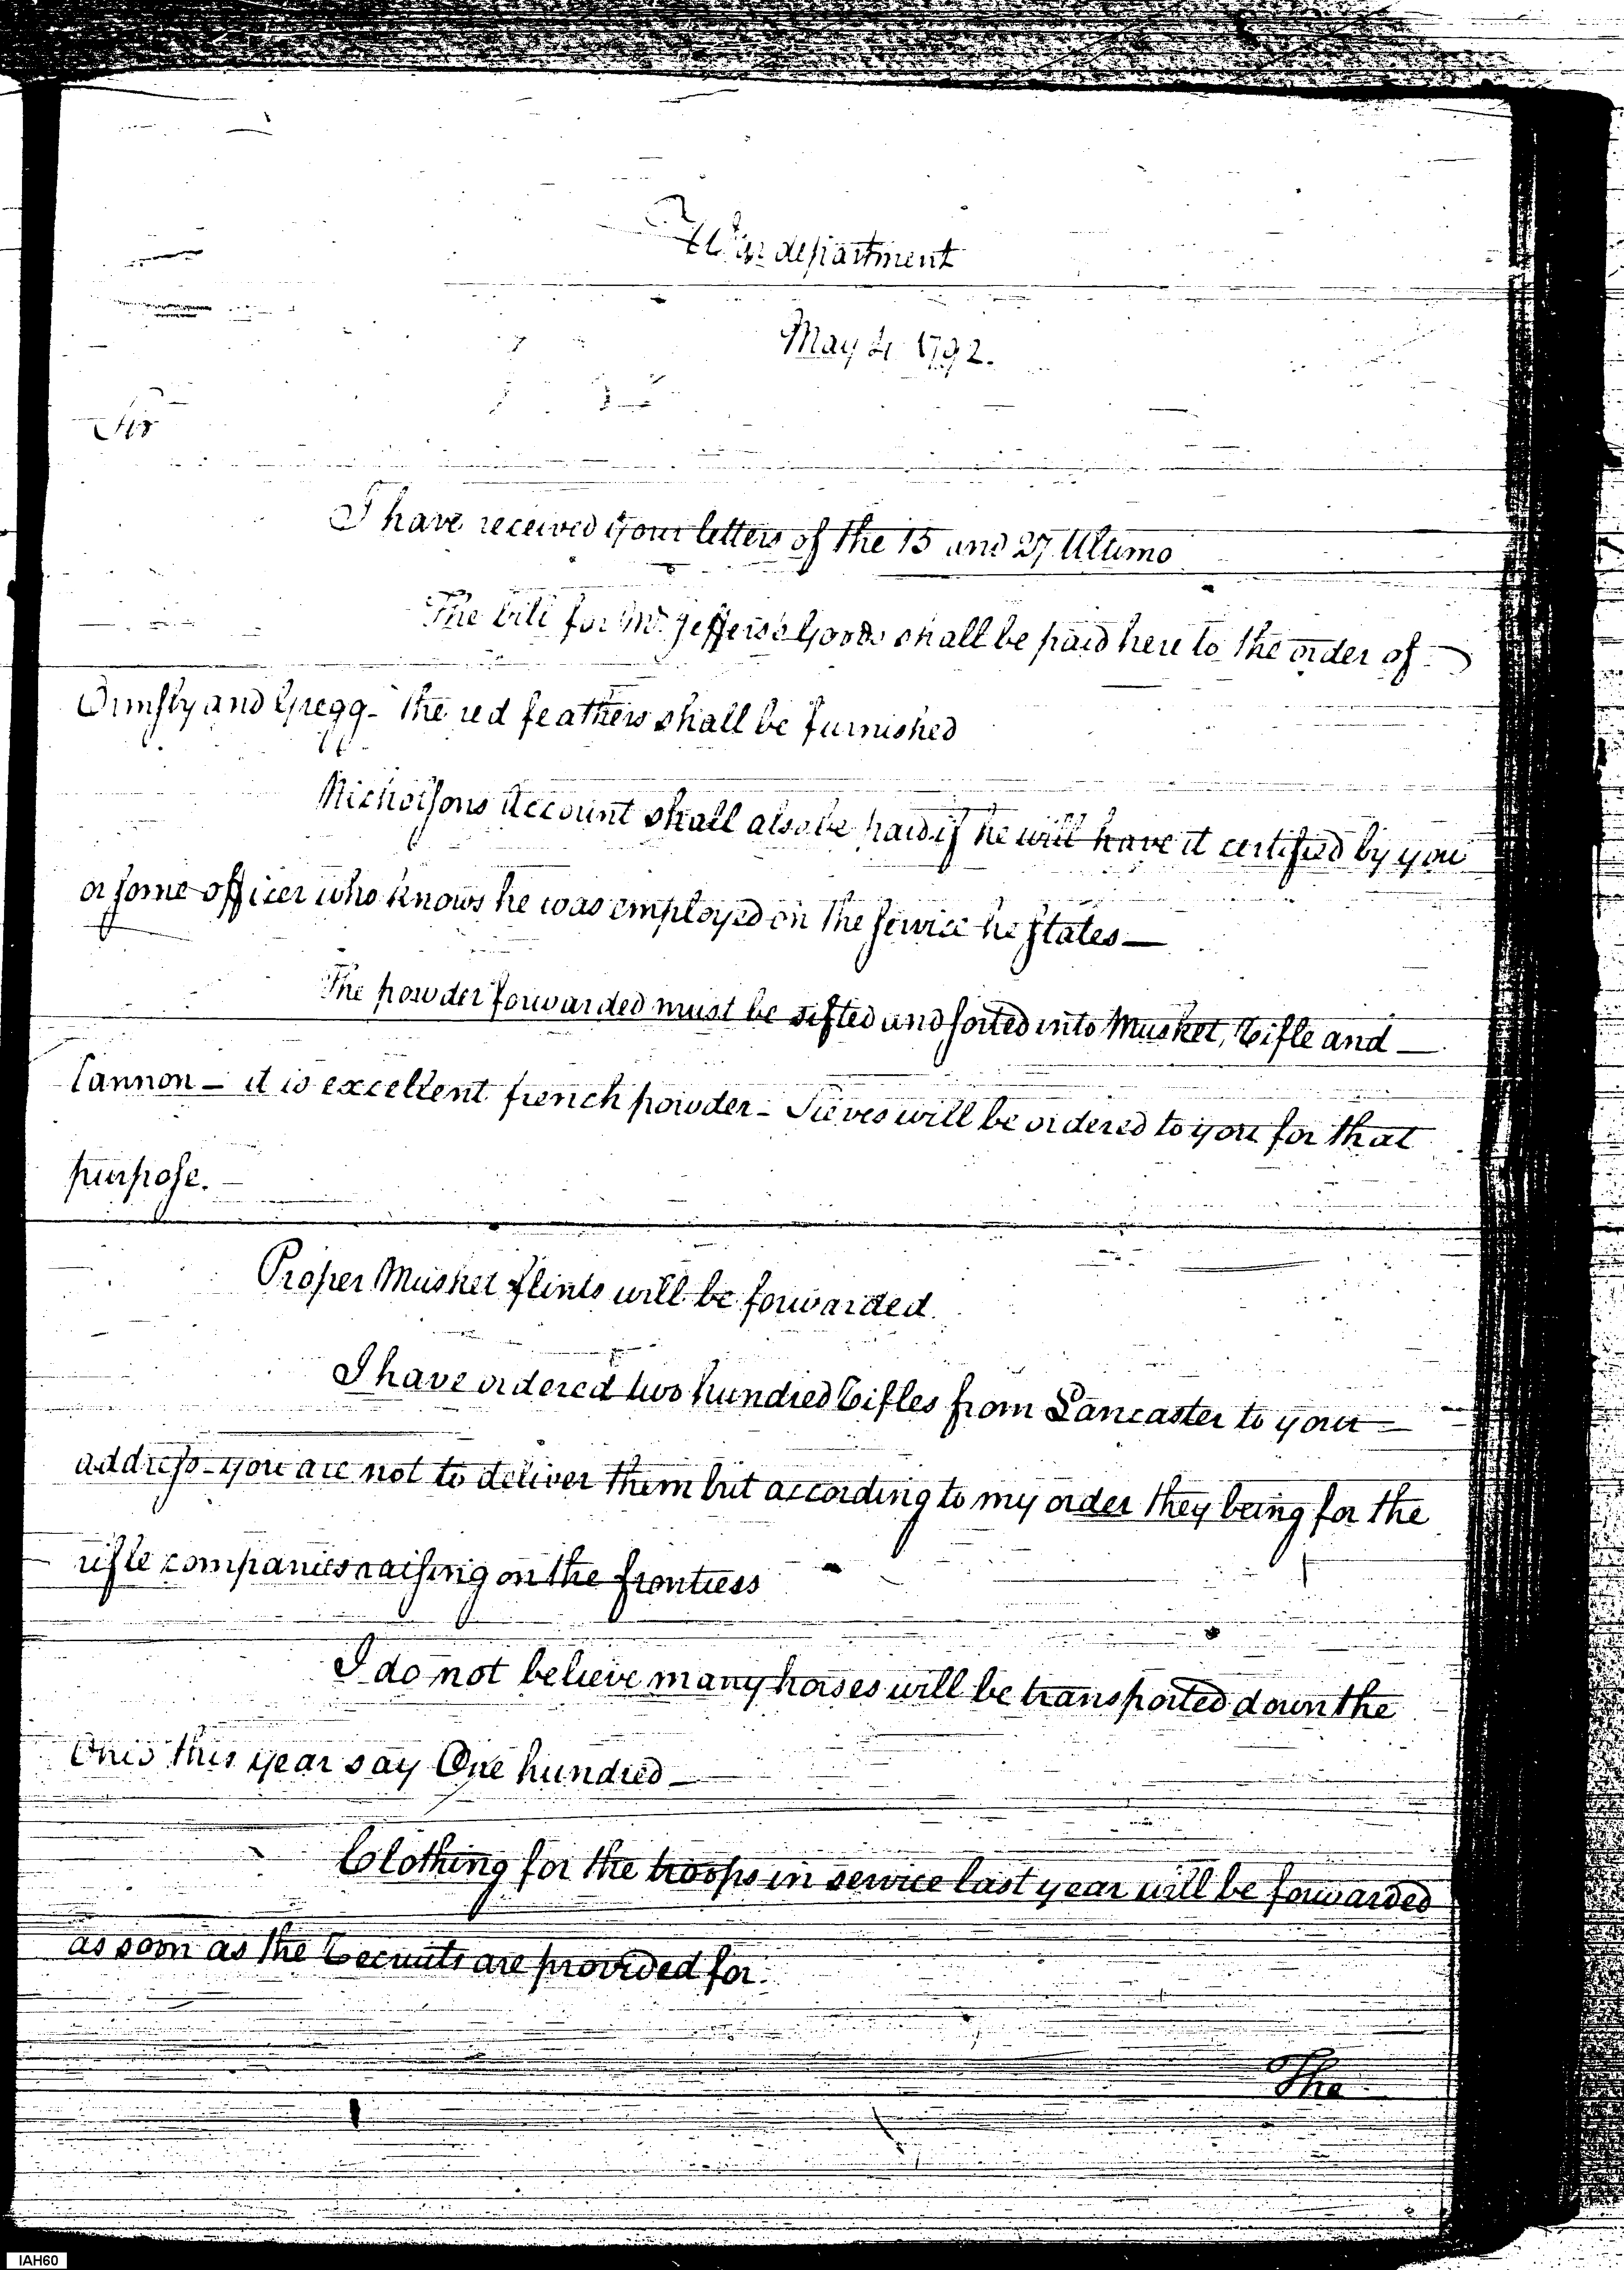 War department
May 4 1792.
Sir
I have received your letters of the 15 and 27 Ultimo
The bill for Mr. Jeffers's Goods shall be paid here to the order of
Ormsby and Gregg - the red feathers shall be furnished
Nicholsons Account shall also be paid if he will have it certified by you
or some officer who knows he was employed on the service he states —
The powder forwarded must be sifted and sorted into Musket, Rifle and —
Cannon — it is excellent french powder - Sieves will be ordered to you for that
purpose. —
Proper Musket flints will be forwarded.
I have ordered two hundred Rifles from Lancaster to your —
address - you are not to deliver them but according to my order they being for the
rifle companies raising on the frontiers
I do not believe many horses will be transported down the
Ohio this year say One hundred —
Clothing for the troops in service last year will be forwarded
as soon as the Recruits are provided for.
The
IAH60